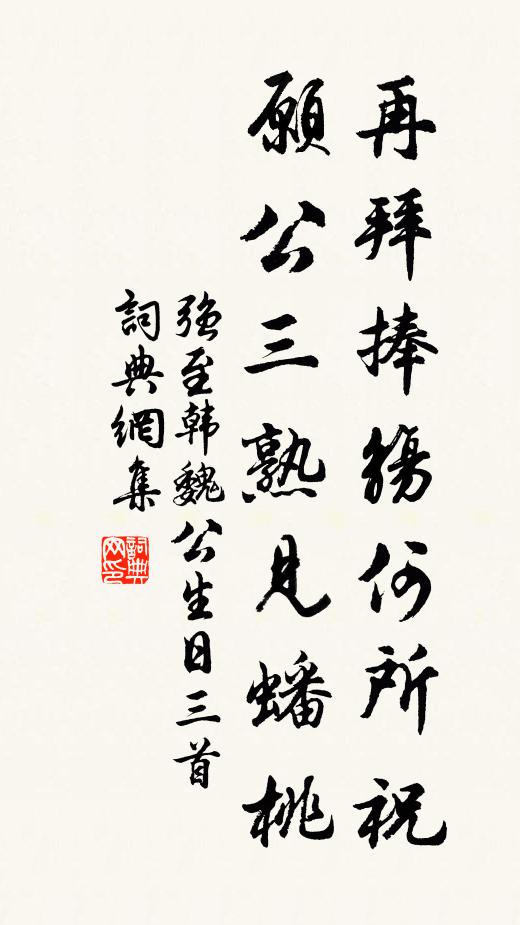 再拜捧觴何所祝
願公三熟見蟠桃
強至韩魏公生日三首
詞典網集
詞典
网印